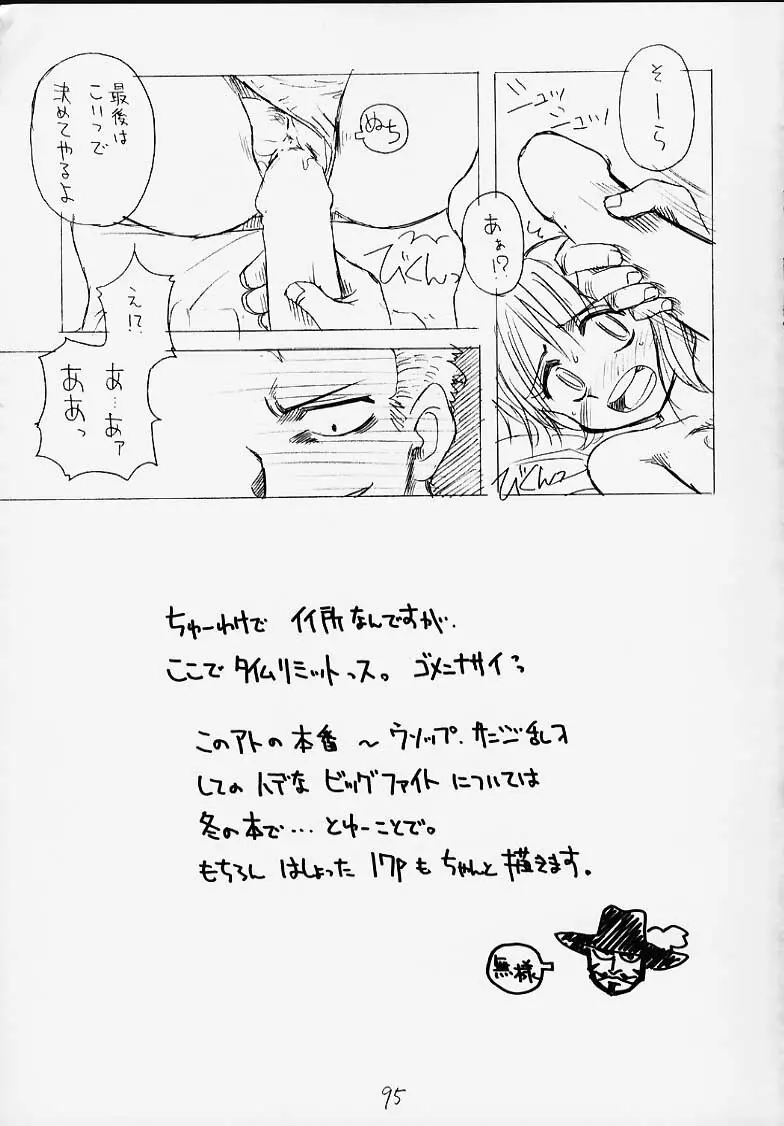 そーら
ニュッ
ニュッ
あぁ!?
びくんっ
ぬち
最後は
こいつで
決めてやるよ
びくんっ
え!?
あ…あァ
ああっ
ちゅーわけで イイ所なんですが、
ここでタイムリミットっス。ゴメンナサイっ
このアトの本番 〜 ウソップ、サンジ乱入
してのハデな ビッグファイト については
冬の本で… とゆーことで。
もちろん はしょった 17Pも ちゃんと 描きます。
無様
95